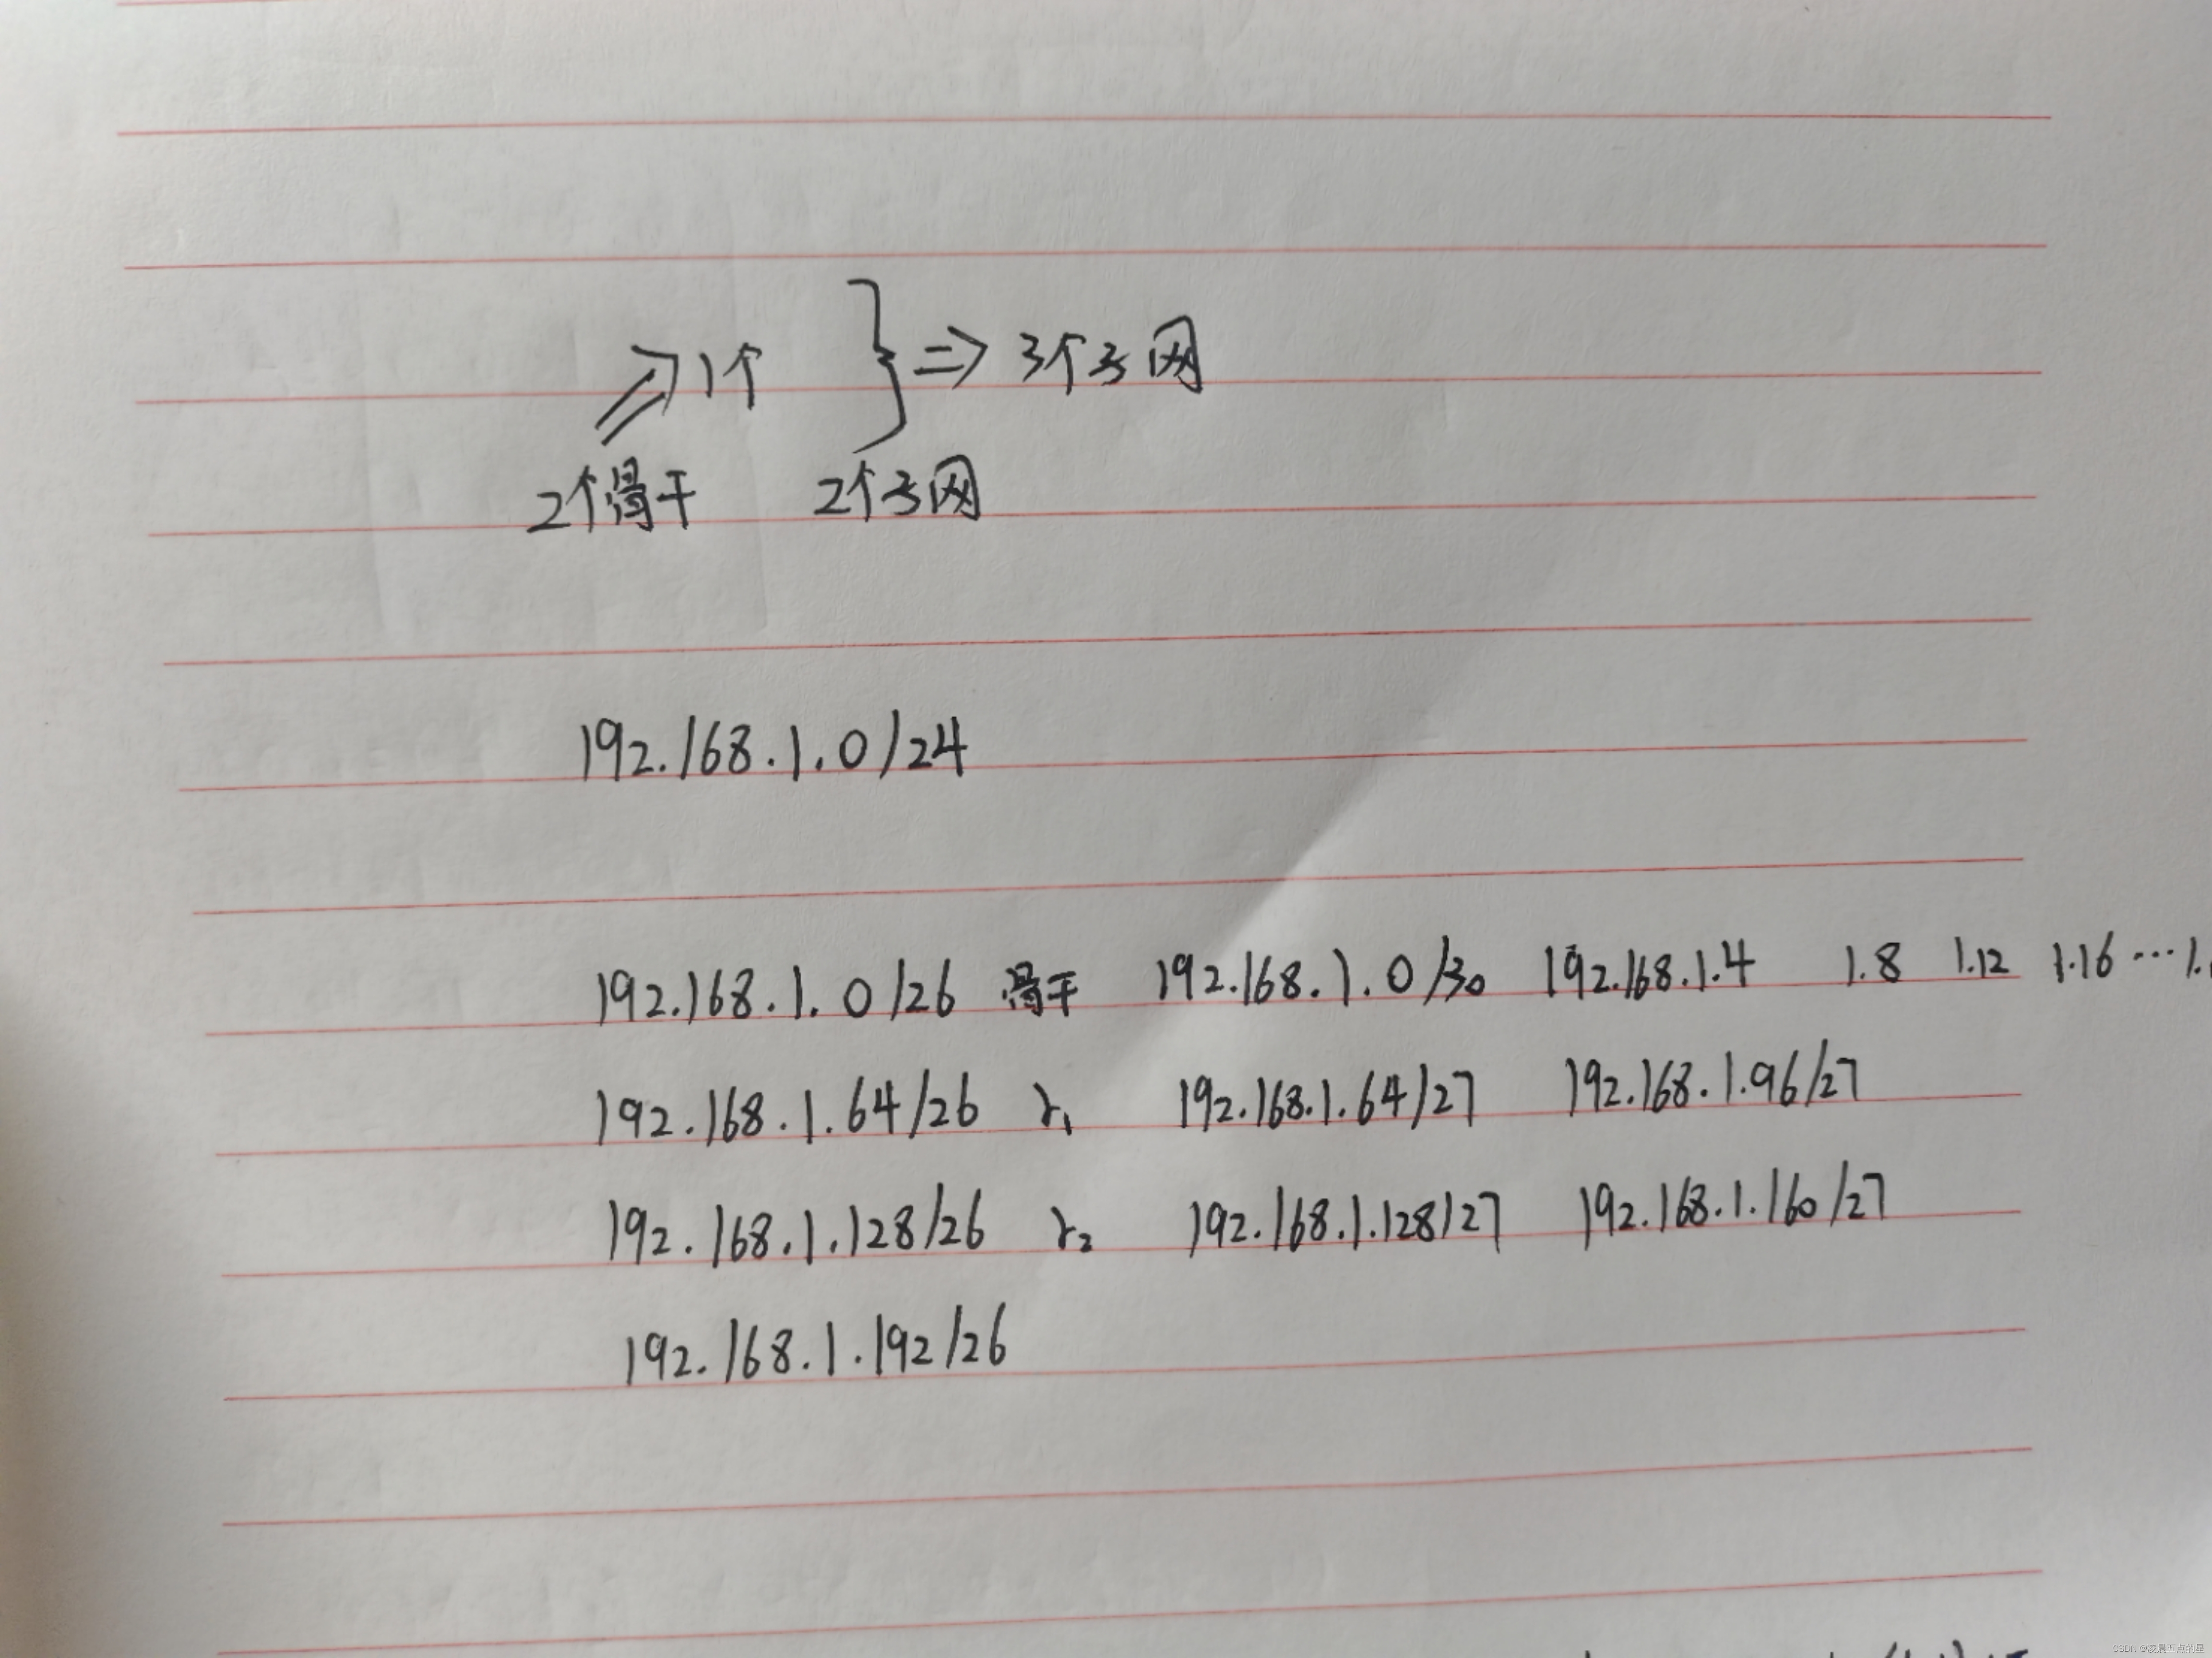 1个 } => 3个子网
2个滑干 2个子网
192.168.1.0/24
192.168.1.0/26 滑干 192.168.1.0/30 192.168.1.4 1.8 1.12 1.16 ...1.
192.168.1.64/26 r1 192.168.1.64/27 192.168.1.96/27
192.168.1.128/26 r2 192.168.1.128/27 192.168.1.160/27
192.168.1.192/26
CSDN @凌晨五点的星